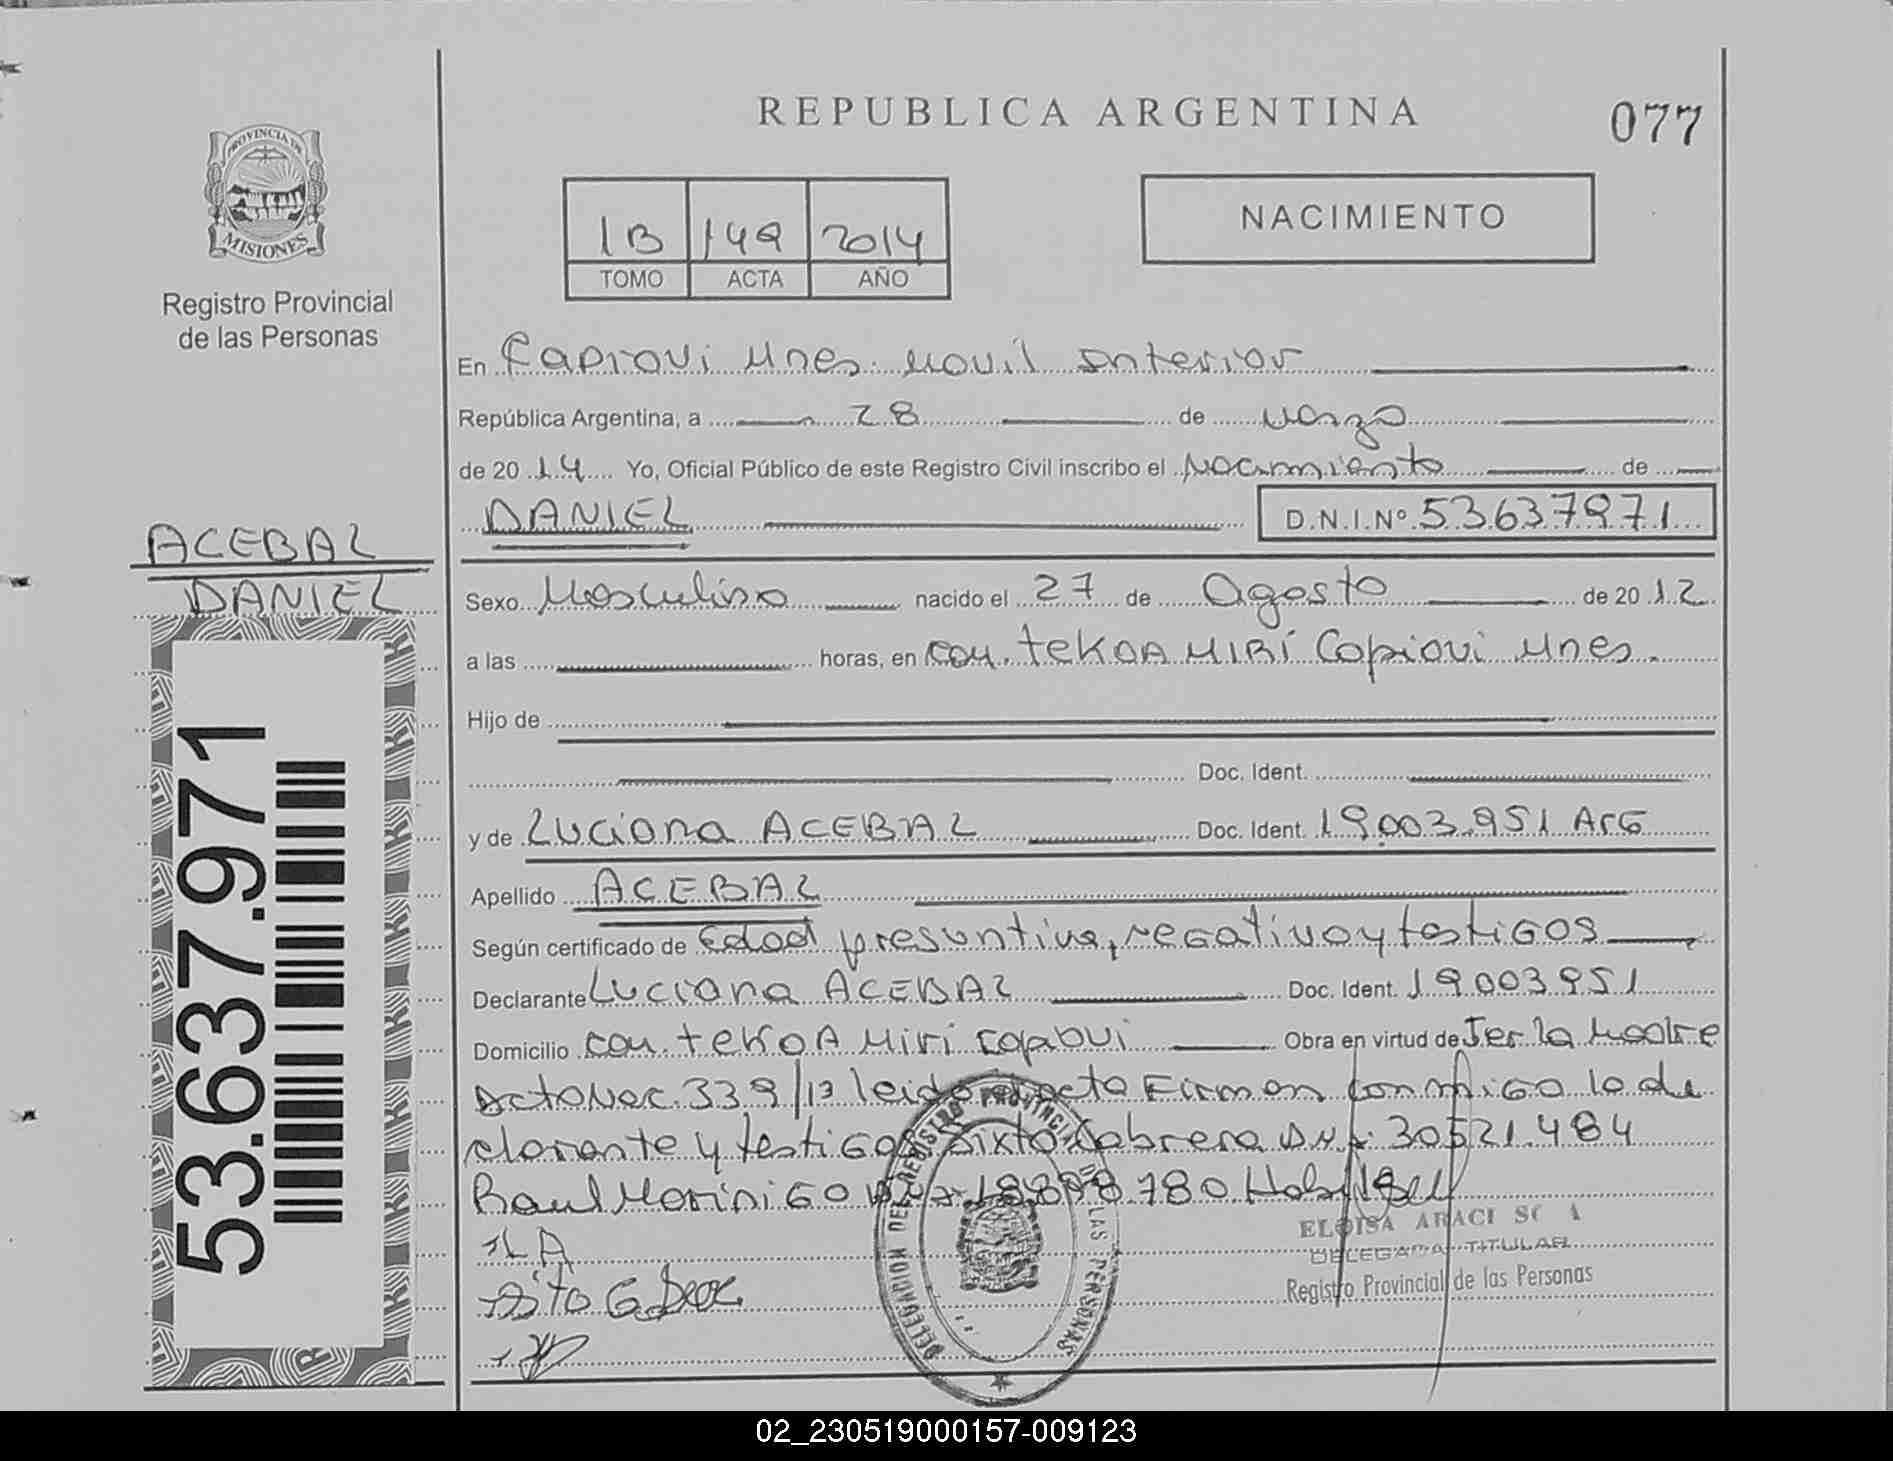 REPUBLICA ARGENTINA
077
PROVINCIA DE
MISIONES
Registro Provincial
de las Personas
1B 149 2014
TOMO ACTA AÑO
NACIMIENTO
En Capiovi Mnes. Movil Interior
República Argentina, a 28 de Marzo
de 2014 Yo, Oficial Público de este Registro Civil inscribo el Nacimiento de
DANIEL D.N.I.Nº 53637971
ACEBAL
DANIEL
53.637.971
Sexo Masculino nacido el 27 de Agosto de 2012
a las horas, en com. TEKOA MIRÍ Capiovi Mnes.
Hijo de
Doc. Ident.
y de Luciana ACEBAL Doc. Ident. 19.003.951 ArG
Apellido ACEBAL
Según certificado de Edad presuntiva, negativo y testigos
Declarante Luciana ACEBAL Doc. Ident. 19.003.951
Domicilio com. TEKOA Miri Capiovi Obra en virtud de Ser la Madre
339/13 leido Firman conmigo la de
clarante y testigos Sixto Cabrera D.N.I. 30521.484
Raul Marini GO 780
Sixto
DELEGACION DEL REGISTRO PROVINCIAL DE LAS PERSONAS
ELOISA ARACI
DELEGADA TITULAR
Registro Provincial de las Personas
02_230519000157-009123